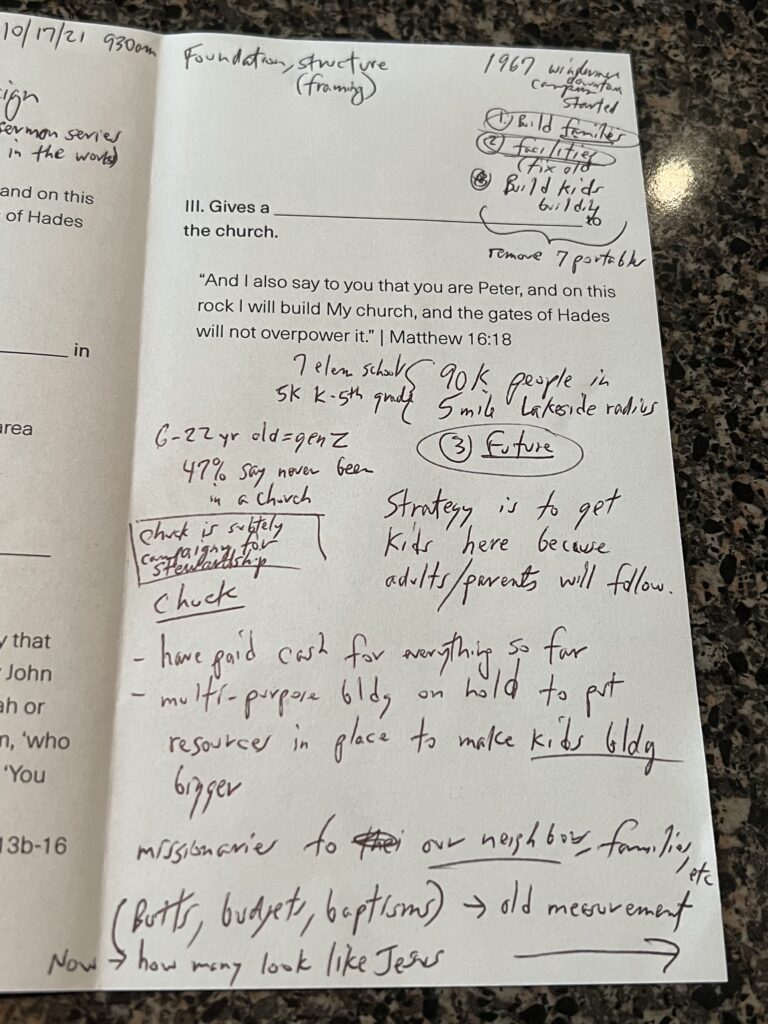 10/17/21 930am
ign
sermon series
in the works)
and on this
of Hades
in
area
y that
John
ah or
n, ‘who
‘You
13b-16
Foundation, structure
(framing)
1967 windermere
downtown
campus
started
① Bild families
② facilities
(fix old
③ Build kids
building
to
remove 7 portables
III. Gives a
the church.
“And I also say to you that you are Peter, and on this
rock I will build My church, and the gates of Hades
will not overpower it.” | Matthew 16:18
7 elem schools
5K K-5th grade
90K people in
5 mile Lakeside radius
6-22 yr old = gen Z
47% say never been
in a church
③ Future
Chuck is subtely
campaigning for
stewardship
Chuck
Strategy is to get
kids here because
adults/parents will follow.
- have paid cash for everything so far
- multi-purpose bldg on hold to put
resources in place to make kids bldg
bigger
missionaries to our neighbors, families,
etc
(Butts, budgets, baptisms) → old measurement
Now → how many look like Jesus →